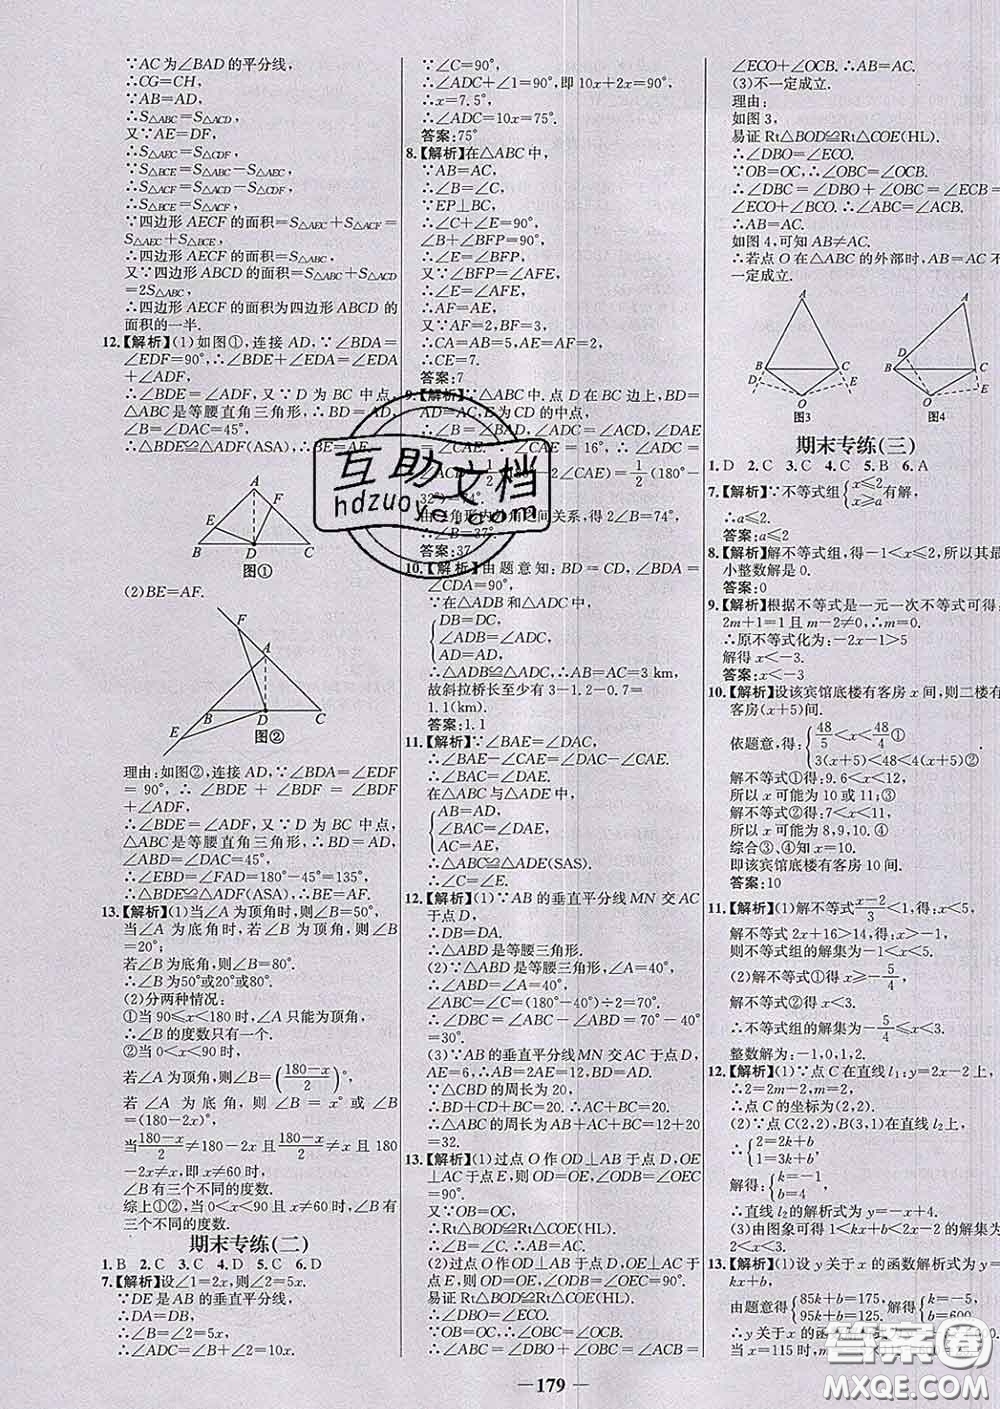 ∵AC为∠BAD的平分线，
∴CG=CH，
∵AB=AD，
∴S△ABC=S△ACD，
又∵AE=DF，
∴S△AEC=S△CDF，
∵S△BCE=S△ABC-S△AEC，
∴S△ACF=S△ACD-S△CDF，
∴S△BCE=S△ACF，
∵四边形AECF的面积=S△AEC+S△ACF=
S△AEC+S△BCE，
∴四边形AECF的面积=S△ABC，
又∵四边形ABCD的面积=S△ABC+S△ACD
=2S△ABC，
∴四边形AECF的面积为四边形ABCD的
面积的一半.
12.【解析】(1)如图①，连接AD，∵∠BDA=
∠EDF=90°，∴∠BDE+∠EDA=∠EDA
+∠ADF，
∴∠BDE=∠ADF，又∵D为BC中点，
△ABC是等腰直角三角形，∴BD=AD，
∠B=∠DAC=45°，
∴△BDE≌△ADF(ASA)，∴BE=AF.
A
F
E
B D C
图①
(2)BE=AF.
F
A
B D C
E
图②
理由：如图②，连接AD，∵∠BDA=∠EDF
=90°，∴∠BDE+∠BDF=∠BDF+
∠ADF，
∴∠BDE=∠ADF，又∵D为BC中点，
△ABC是等腰直角三角形，∴BD=AD，
∠ABD=∠DAC=45°，
∴∠EBD=∠FAD=180°-45°=135°，
∴△BDE≌△ADF(ASA)，∴BE=AF.
13.【解析】(1)当∠A为顶角时，则∠B=50°，
当∠A为底角时，若∠B为顶角，则∠B
=20°；
若∠B为底角，则∠B=80°.
∴∠B为50°或20°或80°.
(2)分两种情况：
①当90≤x<180时，∠A只能为顶角，
∴∠B的度数只有一个.
②当0<x<90时，
若∠A为顶角，则∠B=(180-x/2)°，
若∠A为底角，则∠B=x°或∠B
=(180-2x)°，
当180-x/2≠180-2x且180-x/2≠x且180
-2x≠x，即x≠60时，
∠B有三个不同的度数.
综上①②，当0<x<90且x≠60时，∠B有
三个不同的度数.
期末专练(二)
1.B 2.C 3.C 4.D 5.C 6.D
7.【解析】设∠1=2x，则∠2=5x.
∵DE是AB的垂直平分线，
∴DA=DB，
∴∠B=∠2=5x，
∴∠ADC=∠B+∠2=10x.
∵∠C=90°，
∴∠ADC+∠1=90°，即10x+2x=90°，
∴x=7.5°，
∴∠ADC=10x=75°.
答案：75°
8.【解析】在△ABC中，
∵AB=AC，
∴∠B=∠C，
∵EP⊥BC，
∴∠C+∠E=90°，
∠B+∠BFP=90°，
又∵∠BFP=∠AFE，
∴∠E=∠AFE，
∴AF=AE，
又∵AF=2，BF=3，
∴CA=AB=5，AE=2，
∴CE=7.
答案：7
9.【解析】∵△ABC中，点D在BC边上，BD=
AD=AC，E为CD的中点，
∴∠B=∠BAD，∠ADC=∠ACD，
由三角形内外角之间关系，得2∠B=74°，
∴∠B=37°.
答案：37
10.【解析】由题意知：BD=CD，∠BDA=
∠CDA=90°，
∵在△ADB和△ADC中，
DB=DC，
∠ADB=∠ADC，
AD=AD，
∴△ADB≌△ADC，∴AB=AC=3 km，
故斜拉桥长至少有3-1.2-0.7=
1.1(km).
答案：1.1
11.【解析】∵∠BAE=∠DAC，
∴∠BAE-∠CAE=∠DAC-∠CAE，
∴∠BAC=∠DAE，
在△ABC与△ADE中，
AB=AD，
∠BAC=∠DAE，
AC=AE，
∴△ABC≌△ADE(SAS).
12.【解析】(1)∵AB的垂直平分线MN交AC
于点D，
∴DB=DA.
∴△ABD是等腰三角形.
(2)∵△ABD是等腰三角形，∠A=40°，
∴∠ABD=∠A=40°，
∠ABC=∠C=(180°-40°)÷2=70°，
∴∠DBC=∠ABC-∠ABD=70°-40°
=30°.
(3)∵AB的垂直平分线MN交AC于点D，
AE=6，∴AB=2AE=12，
∵△CBD的周长为20，
∴BD+CD+BC=20，∴AC+BC=20，
∴△ABC的周长为AB+AC+BC=12+20
=32.
13.【解析】(1)过点O作OD⊥AB于点D，OE
⊥AC于点E，则OD=OE，∠ODB=∠OEC
=90°.
又∵OB=OC，
∴Rt△BOD≌Rt△COE(HL).
∴∠B=∠C，∴AB=AC.
(2)过点O作OD⊥AB于点D，OE⊥AC于
点E，则OD=OE，∠ODB=∠OEC=90°.
易证Rt△BOD≌Rt△COE(HL)，
∴∠DBO=∠ECO.
∵OB=OC，∴∠OBC=∠OCB，
∴∠ABC=∠DBO+∠OBC=
∠ECO+∠OCB.∴AB=AC.
(3)不一定成立.
理由：
如图3，
易证Rt△BOD≌Rt△COE(HL).
∴∠DBO=∠ECO.
∵OB=OC，∴∠OBC=∠OCB，
∴∠DBC=∠DBO+∠OBC=∠ECB=
∠ECO+∠BCO.∴∠ABC=∠ACB.
∴AB=AC.
如图4，可知AB≠AC.
∴若点O在△ABC的外部时，AB=AC不
一定成立.
A
B C
D E
O
图3
A
D
B C
E
O
图4
期末专练(三)
1.D 2.C 3.C 4.C 5.B 6.A
7.【解析】∵不等式组{x≤2 x≥a有解，
∴a≤2.
答案：a≤2
8.【解析】解不等式组，得-1<x≤2，所以其最
小整数解是0.
答案：0
9.【解析】根据不等式是一元一次不等式可得：
2m+1=1且m-2≠0，∴m=0.
∴原不等式化为：-2x-1>5
解得x<-3.
答案：x<-3
10.【解析】设该宾馆底楼有客房x间，则二楼有
客房(x+5)间.
依题意，得：{48/5<x<48/4①
3(x+5)<48<4(x+5)②
解不等式①得：9.6<x<12，
所以x可能为10或11；③
解不等式②得：7<x<11，
所以x可能为8,9,10.④
综合③、④知x=10.
即该宾馆底楼有客房10间.
答案：10
11.【解析】(1)解不等式x-2/3<1，得：x<5，
解不等式2x+16>14，得：x>-1，
则不等式组的解集为-1<x<5.
(2)解不等式①得x≥-5/4，
解不等式②得x<3.
∴不等式组的解集为-5/4≤x<3.
整数解为：-1,0,1,2.
12.【解析】(1)∵点C在直线l1：y=2x-2上，
∴2=2m-2，m=2，
∴点C的坐标为(2,2).
(2)∵点C(2,2)，B(3,1)在直线l2上，
∴{2=2k+b 1=3k+b，
解得：{k=-1 b=4，
∴直线l2的解析式为y=-x+4.
(3)由图象可得1<kx+b<2x-2的解集为
2<x<3.
13.【解析】(1)设y关于x的函数解析式为y=
kx+b，
由题意得{85k+b=175, 95k+b=125. 解得{k=-5, b=600.
∴y关于x的函数
当x=115时，
—179—
互助文档
hdzuoye.com
答案圈
MXQE.COM